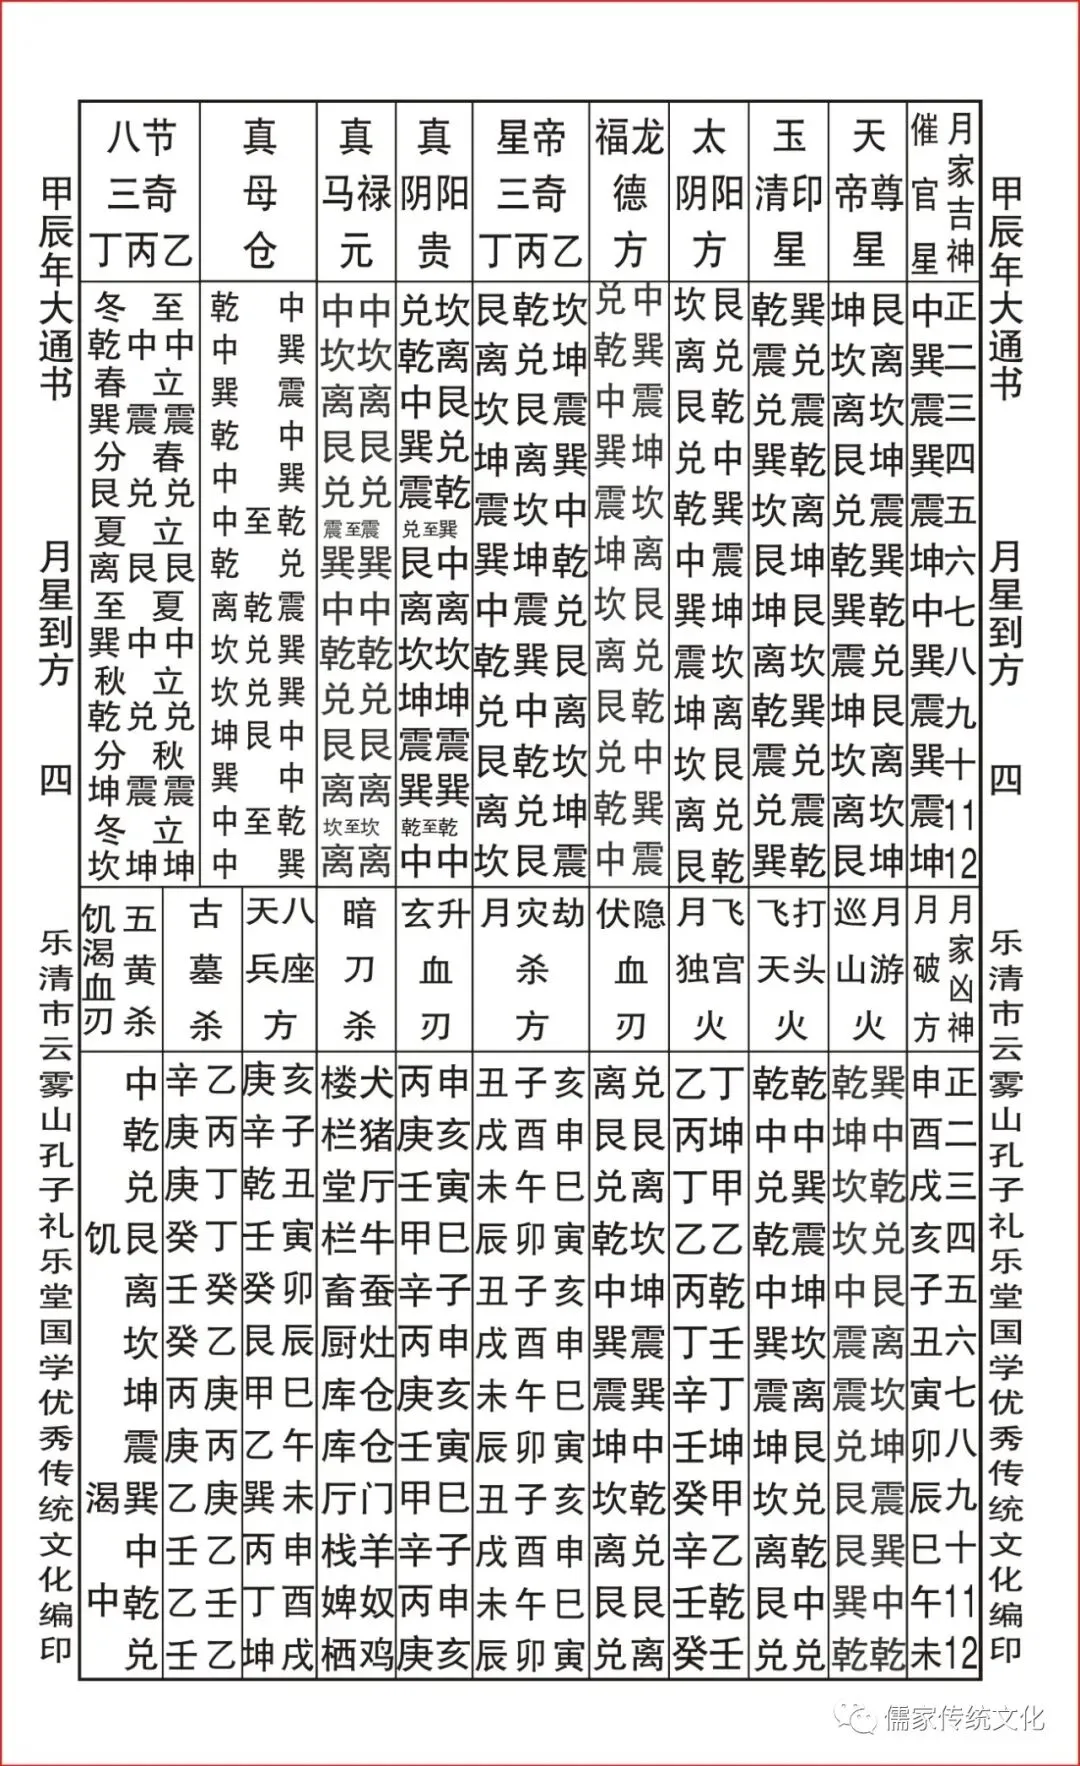 甲辰年大通书 月星到方 四 乐清市云雾山孔子礼乐堂国学优秀传统文化编印
月家吉神 正二三四五六七八九十11 12
催官星 中巽震巽震坤中巽震巽震坤
天尊帝星
坤艮 坎离 离坎 艮坤 兑震 乾巽 巽乾 震兑 坤艮 坎离 离坎 艮坤
玉印清星
乾巽 震兑 兑震 巽乾 坎离 艮坤 坤艮 离坎 乾巽 震兑 兑震 巽乾
太阳阴方
坎艮 离兑 艮乾 兑中 乾巽 中震 巽坤 震坎 坤离 坎艮 离兑 艮乾
龙福德方
兑中 乾巽 中震 巽坤 震坎 坤离 坎艮 离兑 艮乾 兑中 乾巽 中震
帝星三奇乙丙丁
艮乾坎 离兑坤 坎艮震 坤离巽 震坎中 巽坤乾 中震兑 乾巽艮 兑中离 艮乾坎 离兑坤 坎艮震
真阳阴贵
兑坎 乾离 中艮 巽兑 震乾 兑至巽 艮中 离离 坎坎 坤坤 震震 巽巽 乾至乾 中中
真禄马元
中中 坎坎 离离 艮艮 兑兑 震至震 巽巽 中中 乾乾 兑兑 艮艮 离离 坎至坎 离离
真母仓
乾中 中巽 巽震 乾中 中巽 中至乾 乾兑 离乾震 坎兑巽 坎兑巽 坤艮中 巽中 中至乾 中巽
八节三奇乙丙丁
冬至 乾中中 春立 巽震震 分春 艮兑兑 夏立 离艮艮 至夏 巽中中 秋立 乾兑兑 分秋 坤震震 冬立 坎坤坤
月家凶神 正二三四五六七八九十11 12
月破方 申酉戌亥子丑寅卯辰巳午未
月游巡山火
乾巽 坤中 坎乾 坎兑 中艮 震离 震坎 兑坤 艮震 艮巽 巽中 乾乾
打头飞天火
乾乾 中中 兑巽 乾震 中坤 巽坎 震离 坤艮 坎兑 离乾 艮中 兑兑
飞宫月独火
乙丁 丙坤 丁甲 乙乙 丙乾 丁壬 辛丁 壬坤 癸甲 辛乙 壬乾 癸壬
隐伏血刃
离兑 艮艮 兑离 乾坎 中坤 巽震 震巽 坤中 坎乾 离兑 艮艮 兑离
劫灾月杀方
丑子亥 戌酉申 未午巳 辰卯寅 丑子亥 戌酉申 未午巳 辰卯寅 丑子亥 戌酉申 未午巳 辰卯寅
升玄血刃
丙申 庚亥 壬寅 甲巳 辛子 丙申 庚亥 壬寅 甲巳 辛子 丙申 庚亥
暗刀杀
楼犬 栏猪 堂厅 栏牛 畜蚕 厨灶 库仓 库仓 厅门 栈羊 婢奴 栖鸡
八座天兵方
庚亥 辛子 乾丑 壬寅 癸卯 艮辰 甲巳 乙午 巽未 丙申 丁酉 坤戌
古墓杀
辛乙 庚丙 庚丁 癸丁 壬癸 癸乙 丙庚 庚丙 乙庚 壬乙 乙壬 壬乙
五黄杀 中乾兑艮离坎坤震巽中乾兑
饥渴血刃 饥 渴 中
甲辰年大通书 月星到方 四 乐清市云雾山孔子礼乐堂国学优秀传统文化编印
儒家传统文化